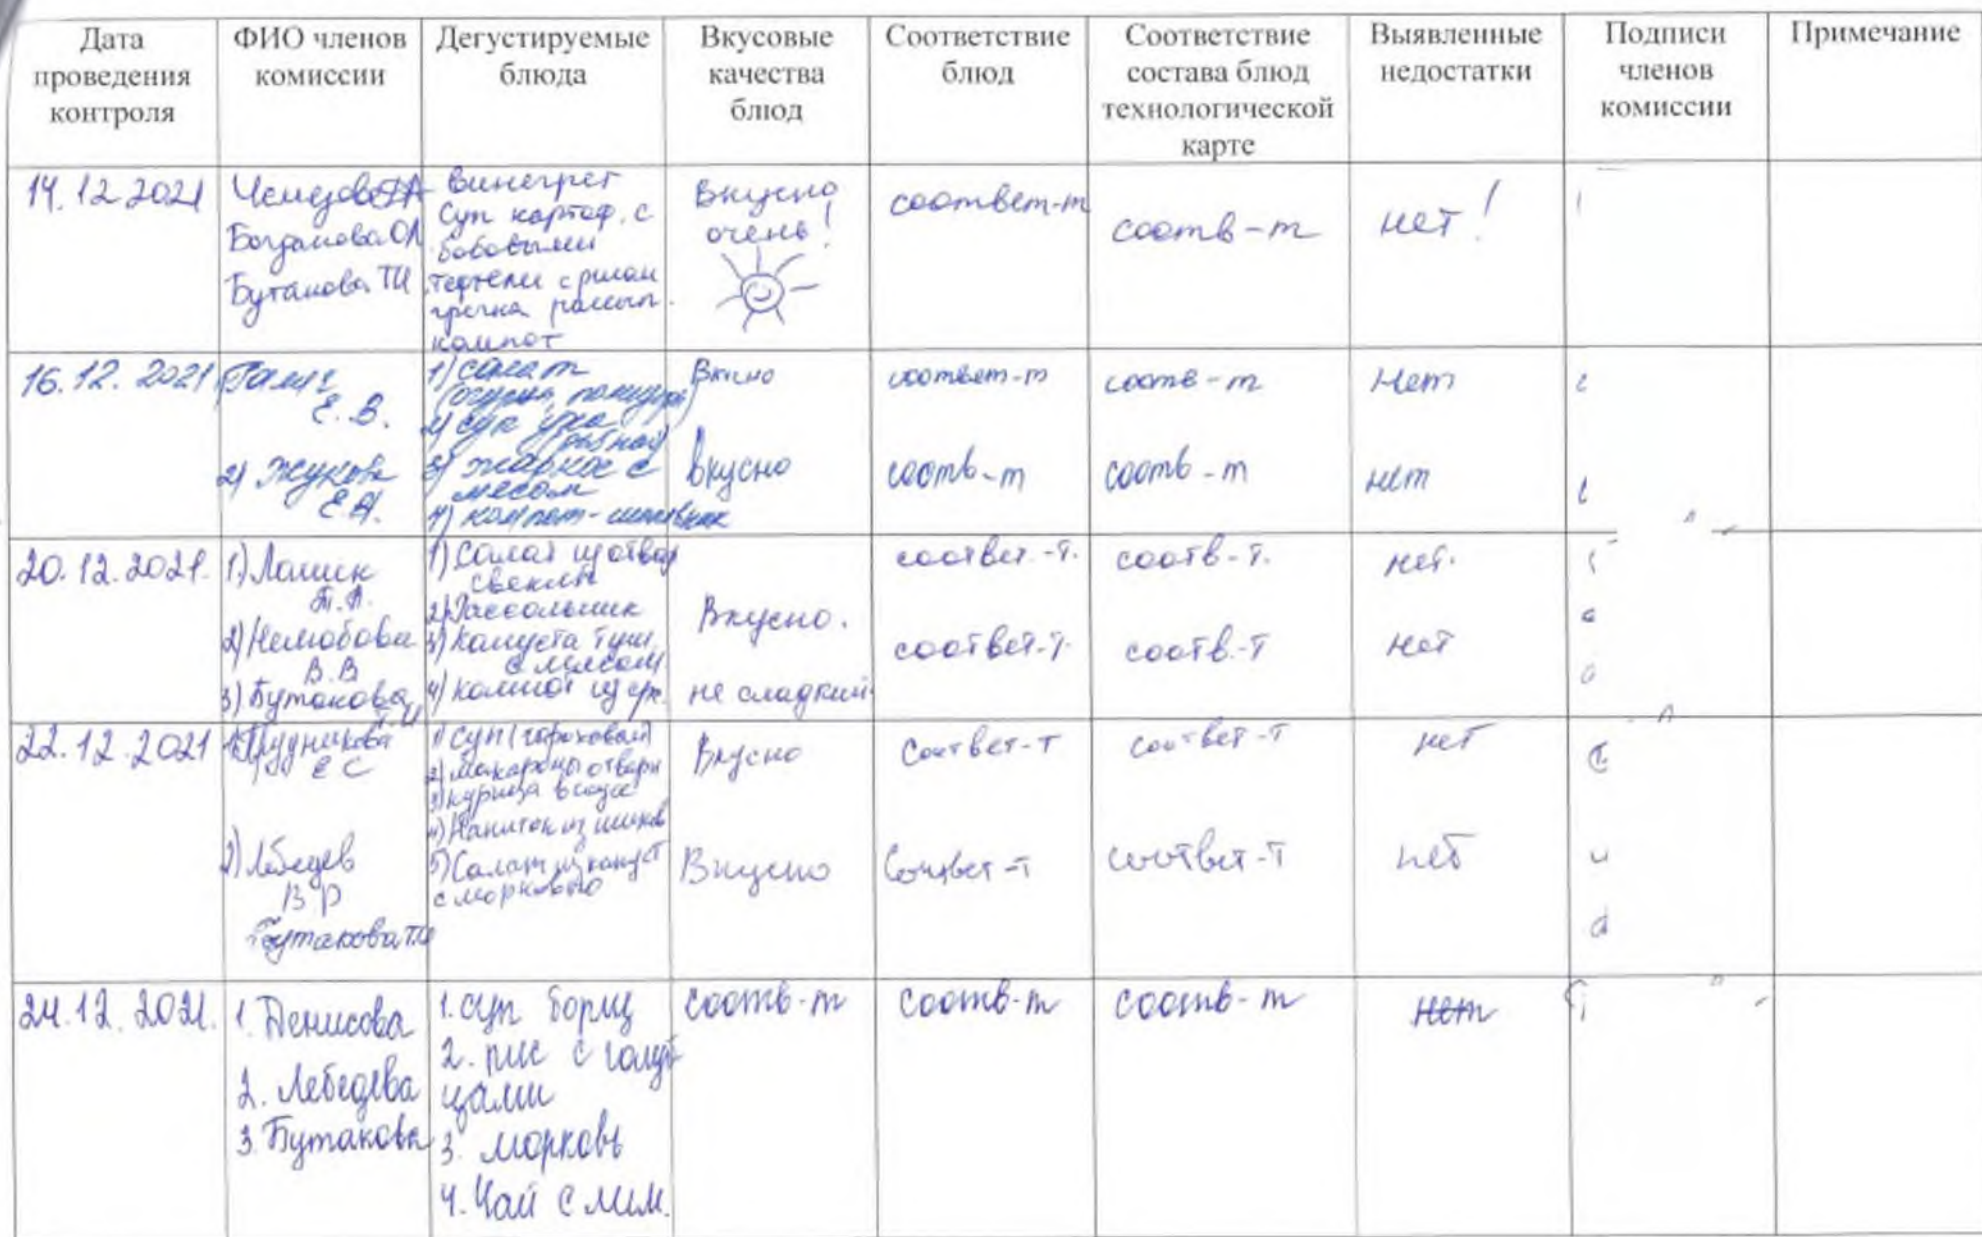 Дата проведения контроля
ФИО членов комиссии
Дегустируемые блюда
Вкусовые качества блюд
Соответствие блюд
Соответствие состава блюд технологической карте
Выявленные недостатки
Подписи членов комиссии
Примечание
14.12.2021
Богданова ОЛ
Бутакова ТИ
Винегрет
Суп картоф. с
бобовыми
тефтели с рисом
гречка рассып.
компот
Вкусно
очень!
соответ-т
соотв-т
нет!
16.12.2021
Е.В.
2) Жукова
Е.А.
1) салат
2) суп уха
рыбная
3) жаркое с
мясом
4) компот-шиповник
Вкусно
вкусно
соответ-т
соотв-т
соотв-т
соотв-т
Нет
нет
20.12.2021.
1) Лашик
2)
В.В
3) Бутакова
1) Салат из отвар
свеклы
2) Рассольник
3) капуста туш
с мясом
4) компот из
Вкусно.
не сладкий
соответ.-т.
соответ-т.
соотв-т.
соотв.-т
нет.
нет
22.12.2021
1) Прудникова
ЕС
2) Лебедев
ВР
Бутакова ТИ
1) Суп (гороховый)
2) Макароны отварн
3) курица в соусе
4) Напиток из шипов
5) Салат из капуст
с морковью
Вкусно
Вкусно
Соответ-т
Соответ-т
соответ-т
соответ-т
нет
нет
24.12.2021.
1. Денисова
2. Лебедева
3. Бутакова
1. суп борщ
2. рис с голуб
цами
3. морковь
4. Чай с лим.
соотв-т
соотв-т
соотв-т
нет